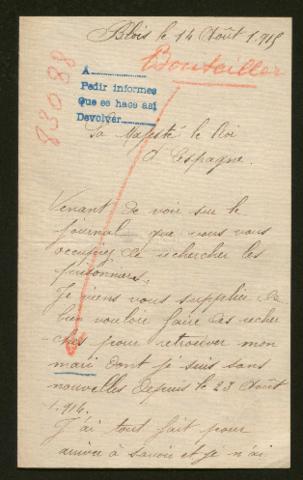 Blois le 14 Août 1.915
Bouteiller
83088
A
Pedir informes
Que se hace así
Devolver
Sa Majesté le Roi
d'Espagne.
Venant de voir sur le
journal que vous vous
occupiez de rechercher les
prisonniers.
Je viens vous supplier de
bien vouloir faire des recher
ches pour retrouver mon
mari dont je suis sans
nouvelles depuis le 23 Août
1.914.
J'ai tout fait pour
arriver à savoir et je n'ai